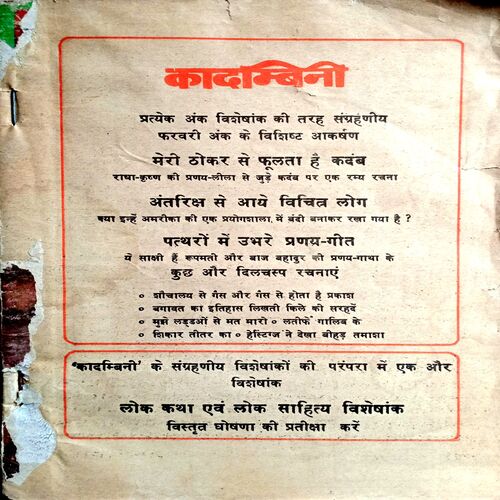 कादम्बिनी
प्रत्येक अंक विशेषांक की तरह संग्रहणीय
फरवरी अंक के विशिष्ट आकर्षण
मेरी ठोकर से फूलता है कदंब
राधा-कृष्ण की प्रणय-लीला से जुड़े कदंब पर एक रम्य रचना
अंतरिक्ष से आये विचित्र लोग
क्या इन्हें अमरीका की एक प्रयोगशाला, में बंदी बनाकर रखा गया है ?
पत्थरों में उभरे प्रणय-गीत
ये साक्षी हैं रूपमती और बाज बहादुर की प्रणय-गाथा के
कुछ और दिलचस्प रचनाएं
० शौचालय से गैस और गैस से होता है प्रकाश
० बगावत का इतिहास लिखती किले की सरहदें
० मुझे लड्डओं से मत मारो ० लतीफें गालिब के
० शिकार तीतर का ० हेस्टिंग्ज ने देखा बीहड़ तमाशा
'कादम्बिनी' के संग्रहणीय विशेषांकों की परंपरा में एक और
विशेषांक
लोक कथा एवं लोक साहित्य विशेषांक
विस्तृत घोषणा की प्रतीक्षा करें